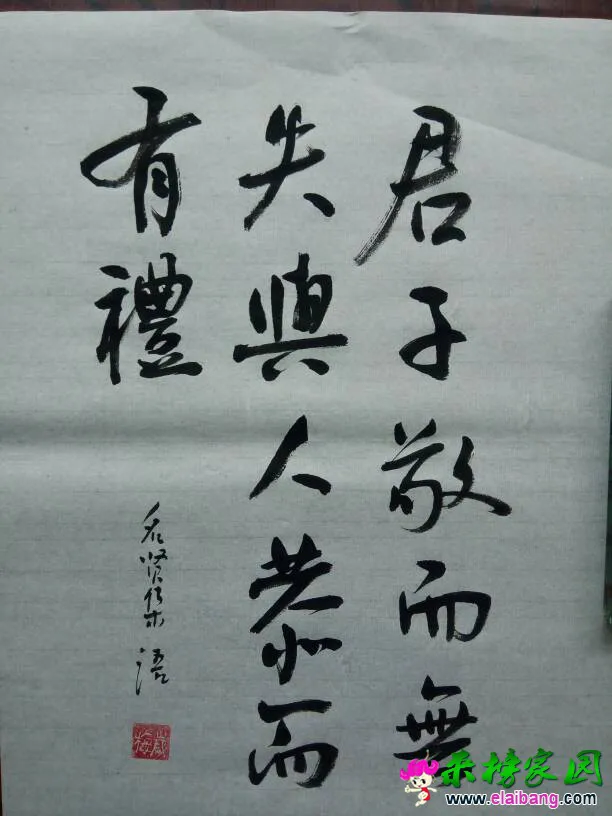 君子敬而無
失與人恭而
有禮
名贤集 语
来榜家园
www.elaibang.com